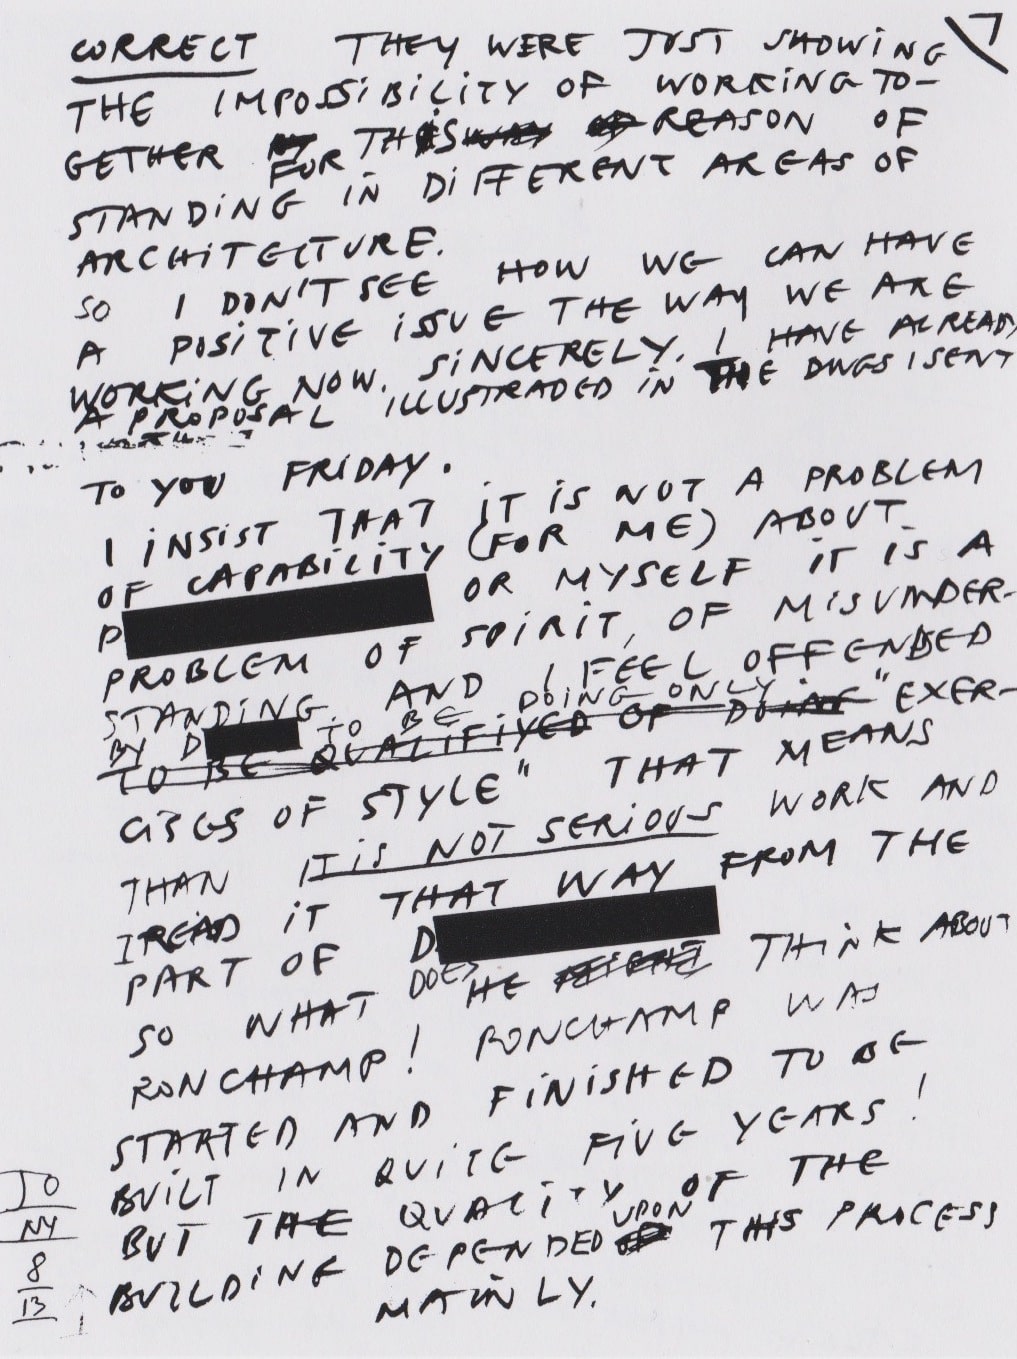 CORRECT THEY WERE JUST SHOWING
THE IMPOSSIBILITY OF WORKING TO-
GETHER FOR THIS REASON OF
STANDING IN DIFFERENT AREAS OF
ARCHITECTURE.
SO I DON'T SEE HOW WE CAN HAVE
A POSITIVE ISSUE THE WAY WE ARE
WORKING NOW. SINCERELY. I HAVE ALREADY
A PROPOSAL ILLUSTRADED IN THE DWGS I SENT
TO YOU FRIDAY.
I INSIST THAT IT IS NOT A PROBLEM
OF CAPABILITY (FOR ME) ABOUT
P OR MYSELF IT IS A
PROBLEM OF SPIRIT, OF MISUNDER-
STANDING AND I FEEL OFFENDED
BY D TO BE DOING ONLY "EXER-
TO BE QUALIFIYED OF DOING
CISES OF STYLE" THAT MEANS
THAN IT IS NOT SERIOUS WORK AND
I READ IT THAT WAY FROM THE
PART OF D
SO WHAT DOES HE THINK ABOUT
RONCHAMP! RONCHAMP WAS
STARTED AND FINISHED TO BE
BUILT IN QUITE FIVE YEARS!
BUT THE QUALITY OF THE
BUILDING DEPENDED UPON THIS PROCESS
MAINLY.
TO
NY
8
13